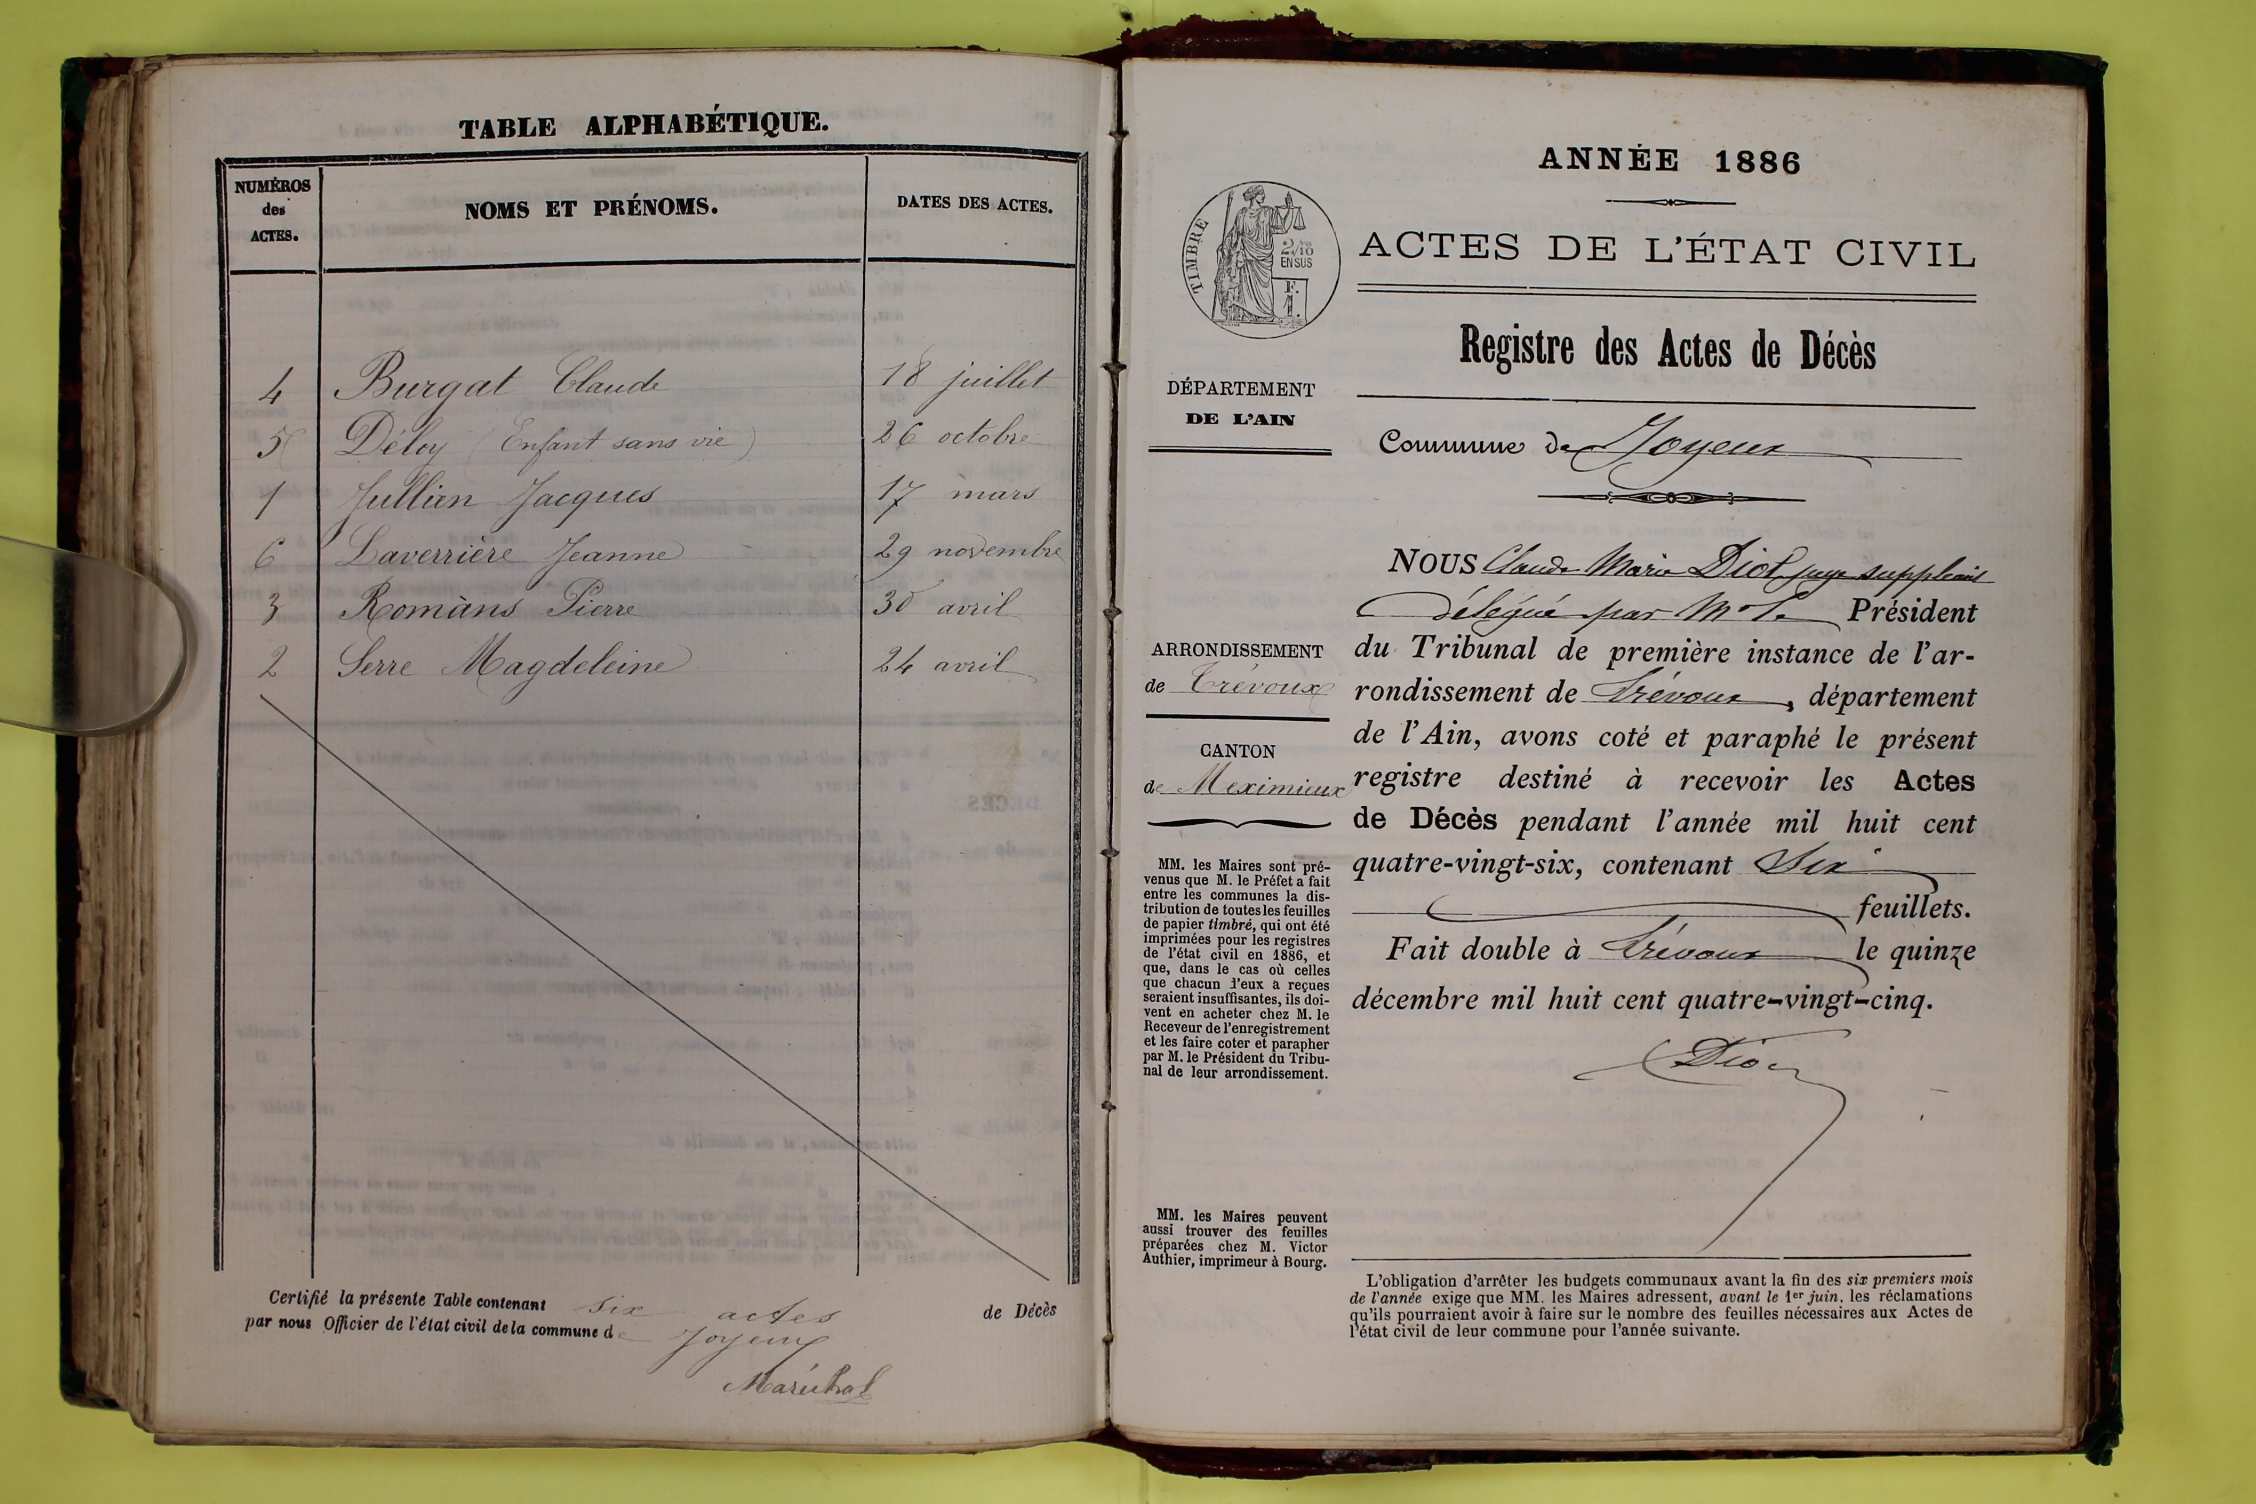 TABLE ALPHABÉTIQUE.
NUMÉROS
des
ACTES.
NOMS ET PRÉNOMS.
DATES DES ACTES.
4 Burgat Claude 18 juillet
5 Déloy (Enfant sans vie) 26 octobre
1 Jullian Jacques 17 mars
6 Laverrière Jeanne 29 novembre
3 Romans Pierre 30 avril
2 Serre Magdeleine 24 avril
Certifié la présente Table contenant six actes de Décès
par nous Officier de l'état civil de la commune de Joyeux
Maréchal
ANNÉE 1886
TIMBRE
2/10
EN SUS
F.
1.
ACTES DE L'ÉTAT CIVIL
Registre des Actes de Décès
Commune de Joyeux
DÉPARTEMENT
DE L'AIN
ARRONDISSEMENT
de Trévoux
CANTON
de Meximieux
MM. les Maires sont pré-
venus que M. le Préfet a fait
entre les communes la dis-
tribution de toutes les feuilles
de papier timbré, qui ont été
imprimées pour les registres
de l'état civil en 1886, et
que, dans le cas où celles
que chacun d'eux a reçues
seraient insuffisantes, ils doi-
vent en acheter chez M. le
Receveur de l'enregistrement
et les faire coter et parapher
par M. le Président du Tribu-
nal de leur arrondissement.
MM. les Maires peuvent
aussi trouver des feuilles
préparées chez M. Victor
Authier, imprimeur à Bourg.
NOUS Claude Marie Diot juge suppléant
délégué par Mr le Président
du Tribunal de première instance de l'ar-
rondissement de Trévoux, département
de l'Ain, avons coté et paraphé le présent
registre destiné à recevoir les Actes
de Décès pendant l'année mil huit cent
quatre-vingt-six, contenant Six
feuillets.
Fait double à Trévoux le quinze
décembre mil huit cent quatre-vingt-cinq.
Diot
L'obligation d'arrêter les budgets communaux avant la fin des six premiers mois
de l'année exige que MM. les Maires adressent, avant le 1er juin, les réclamations
qu'ils pourraient avoir à faire sur le nombre des feuilles nécessaires aux Actes de
l'état civil de leur commune pour l'année suivante.